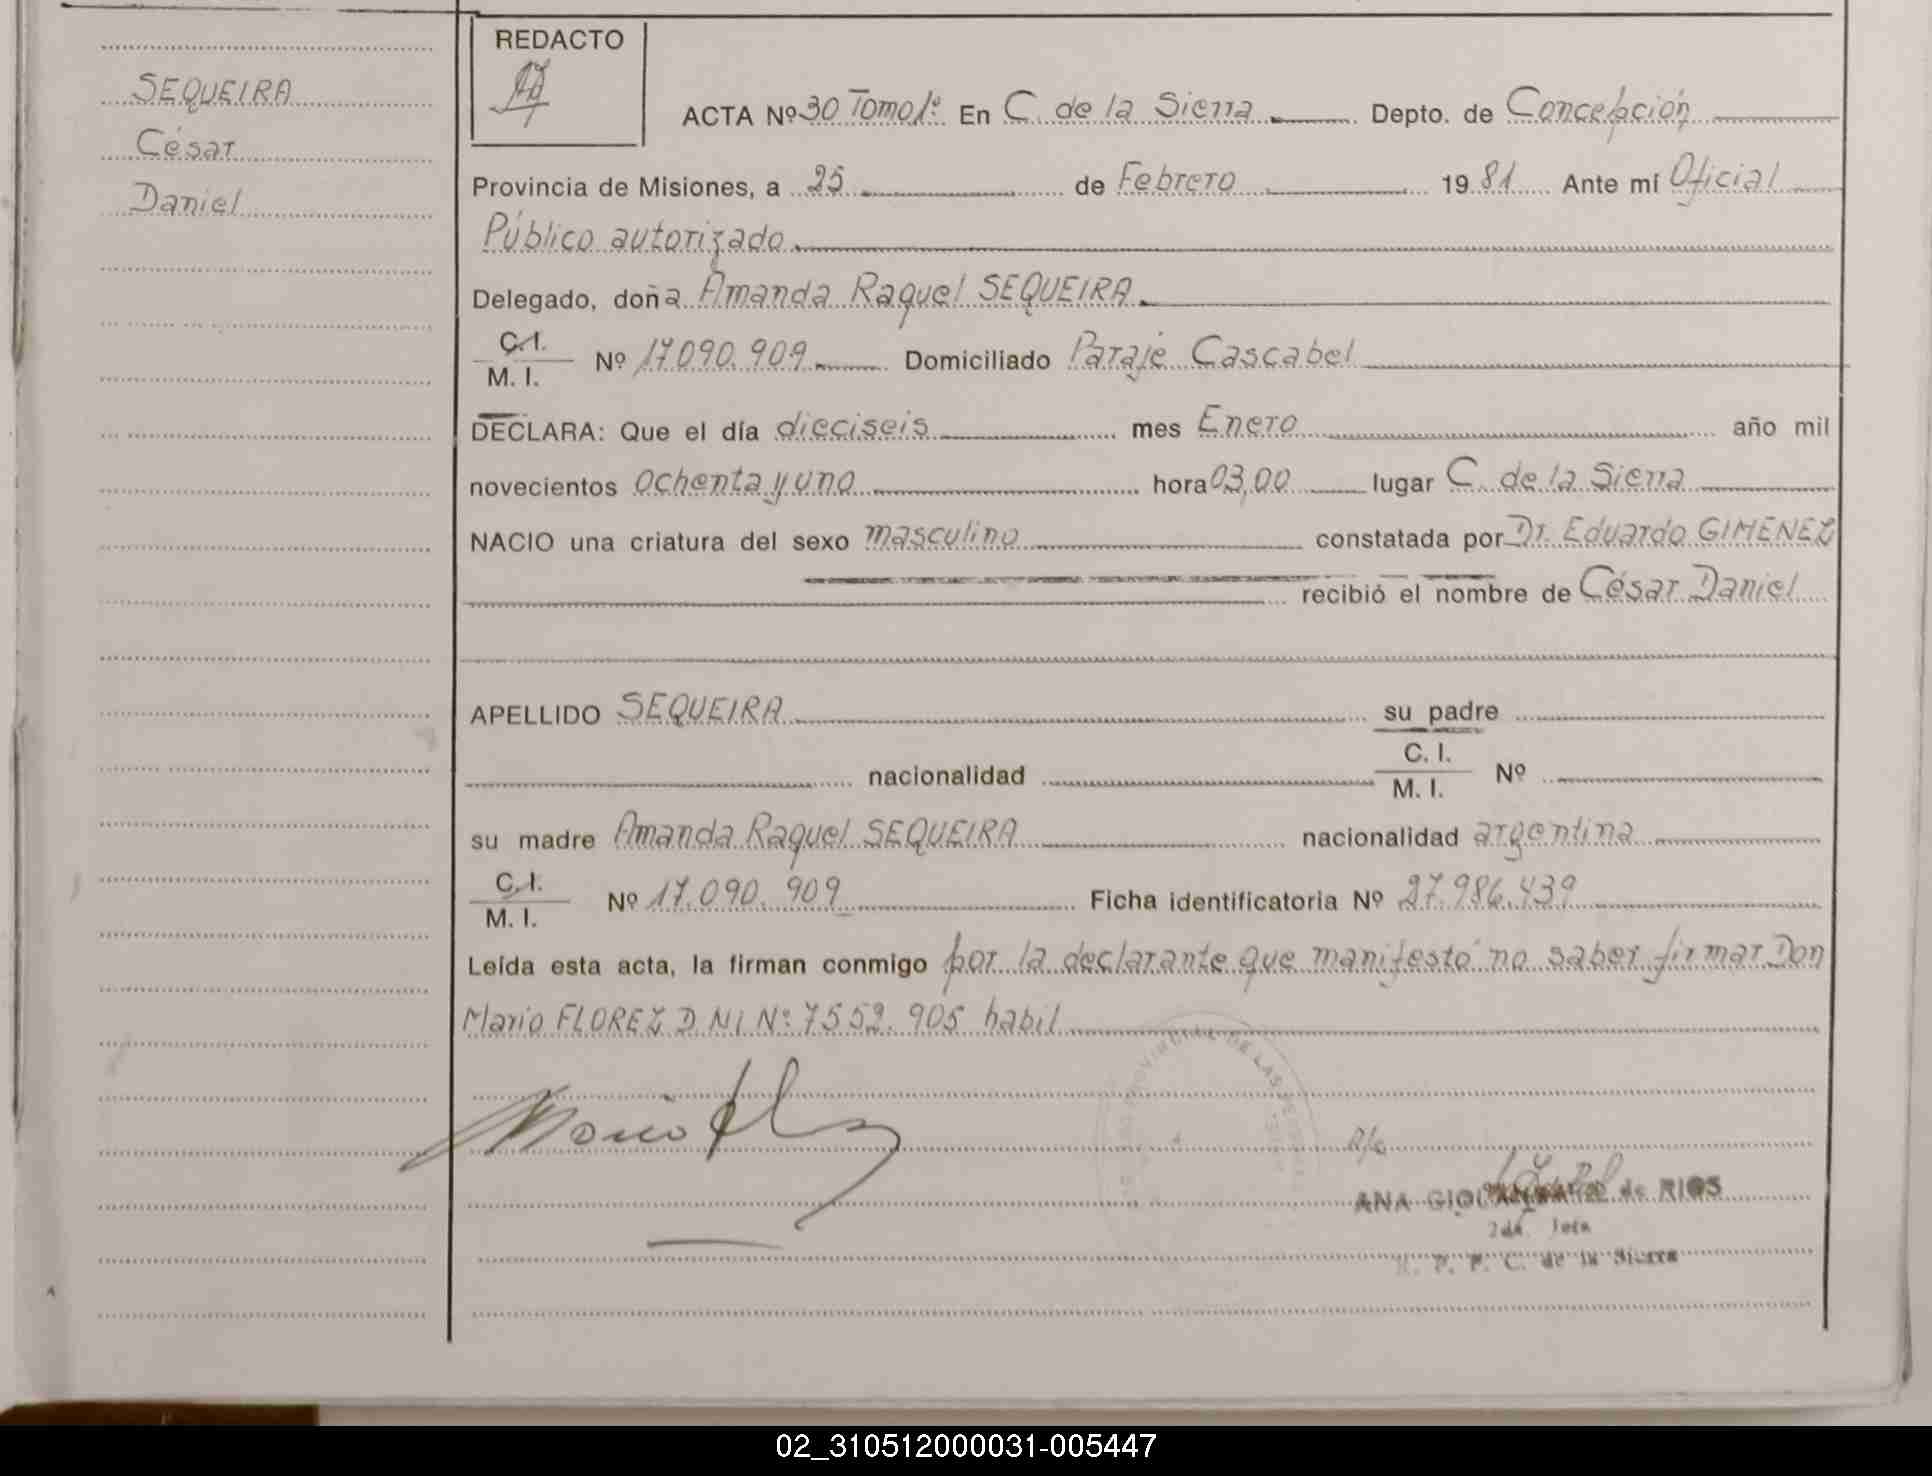 REDACTO
SEQUEIRA
César
Daniel
ACTA Nº 30 Tomo 1º En C. de la Sierra Depto. de Concepción
Provincia de Misiones, a 25 de Febrero 1981 Ante mí Oficial
Público autorizado
Delegado, doña Amanda Raquel SEQUEIRA
C.I.
M. I. Nº 17.090.909 Domiciliado Paraje Cascabel
DECLARA: Que el día dieciseis mes Enero año mil
novecientos ochenta y uno hora 03,00 lugar C. de la Sierra
NACIO una criatura del sexo masculino constatada por Dr. Eduardo GIMENEZ
recibió el nombre de César Daniel
APELLIDO SEQUEIRA su padre
nacionalidad C. I. Nº
M. I.
su madre Amanda Raquel SEQUEIRA nacionalidad argentina
C.I.
M. I. Nº 17.090.909 Ficha identificatoria Nº 27.986.439
Leída esta acta, la firman conmigo por la declarante que manifestó no saber firmar Don
Mario FLOREZ D NI Nº 7552.905 habil
DE LAS
ANA de RIOS
2da. Jefa
R. P. P. C. de la Sierra
02_310512000031-005447